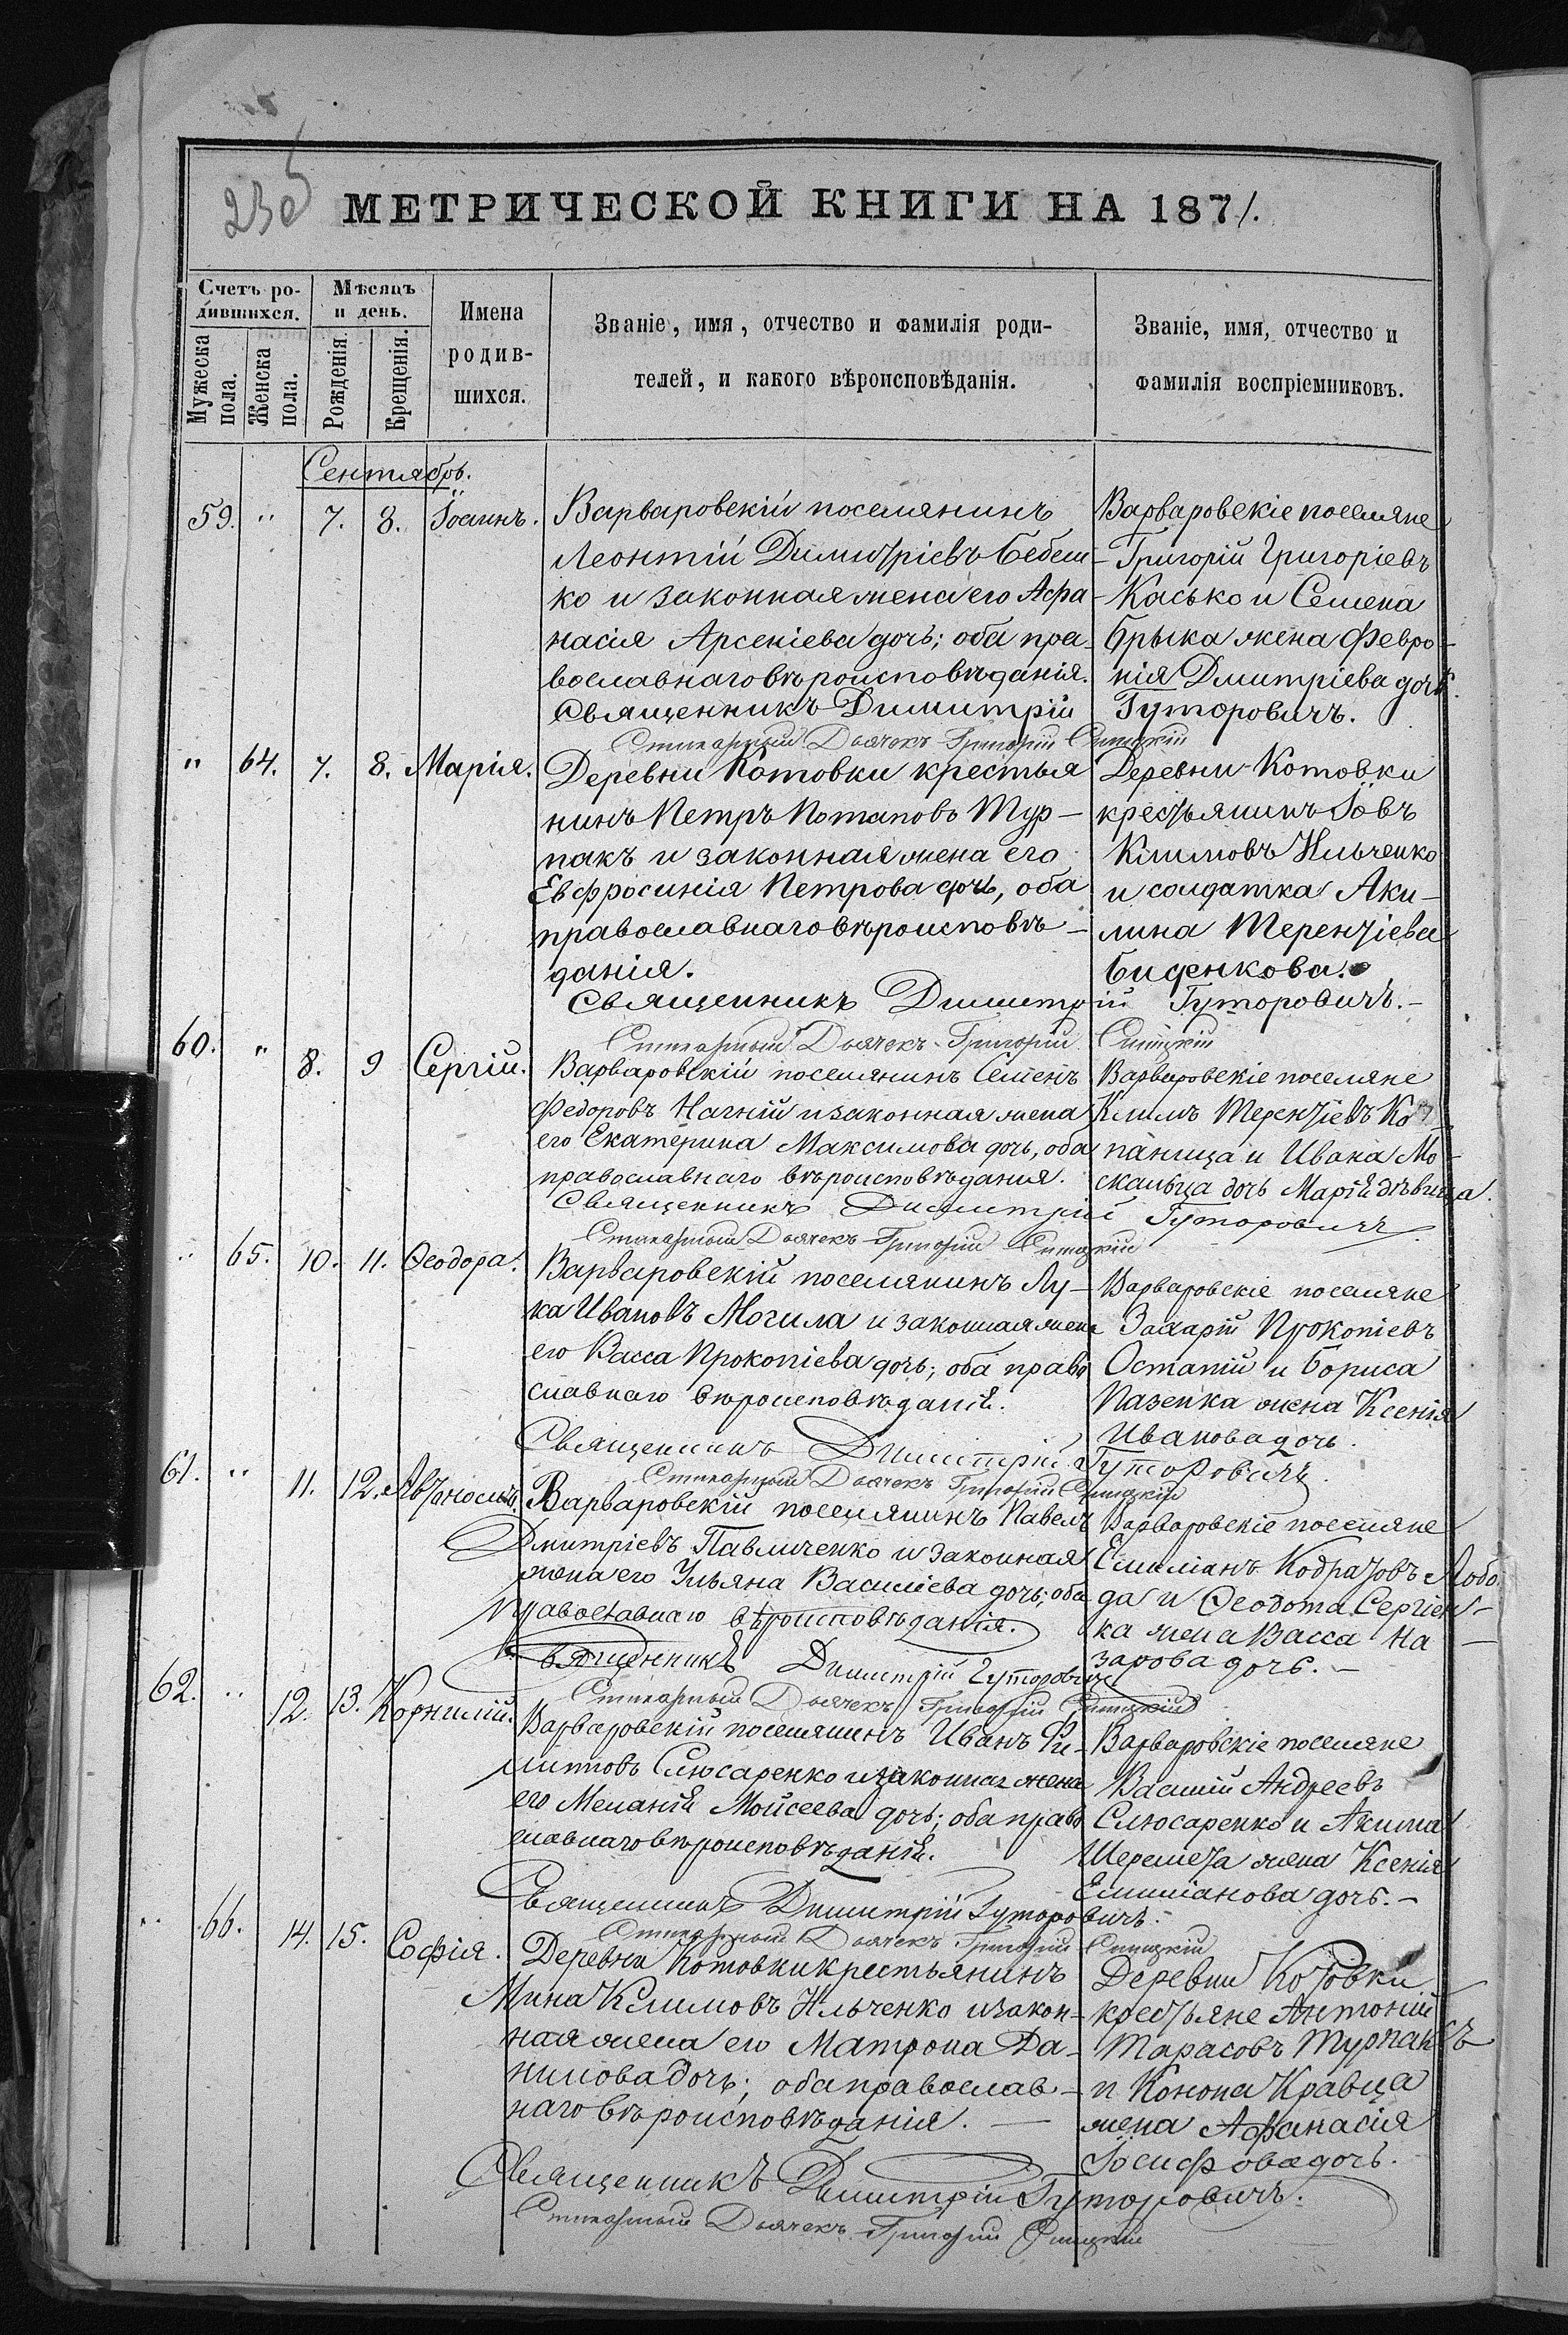 235
МЕТРИЧЕСКОЙ КНИГИ НА 1871.
Счетъ ро-
дившихся.
Мѣсяцъ
и день.
Имена
родив-
шихся.
Званіе, имя, отчество и фамилія роди-
телей, и какого вѣроисповѣданія.
Званіе, имя, отчество и
фамилія воспріемниковъ.
Мужеска
пола.
Женска
пола.
Рожденія.
Крещенія.
Сентябрь.
59. " 7. 8. Іоаннъ.
Варваровскій поселянинъ
Леонтій Димитріевъ Бебеш-
ко и законная жена его Афа-
насія Арсеніева дочь; оба пра-
вославнаго вѣроисповѣданія.
Варваровскіе поселяне
Григорій Григоріевъ
Касько и Семена
Брыка жена Февро-
нія Дмитріева дочь.
Священникъ Димитрій Гуторовичъ.
Стихарный Дьячекъ Григорій
" 64. 7. 8. Марія.
Деревни Котовки крестья
нинъ Петръ Потаповъ Тур-
пакъ и законная жена его
Евфросинія Петрова дочь, оба
православнаго вѣроисповѣ-
данія.
Деревни Котовки
крестьянинъ Іовъ
Климовъ Ильченко
и солдатка Аки-
лина Терентіева
Биденкова.
Священникъ Димитрій Гуторовичъ.-
Стихарный Дьячекъ Григорій
60. " 8. 9 Сергій.
Варваровскій поселянинъ Семенъ
Федоровъ Нагній и законная жена
его Екатерина Максимова дочь, оба
православнаго вѣроисповѣданія.
Варваровскіе поселяне
Климъ Терентіевъ Ко-
паница и Ивана Мо-
скальца дочь Марія дѣвица.
Священникъ Димитрій Гуторовичъ
Стихарный Дьячекъ Григорій
" 65. 10. 11. Ѳеодора.
Варваровскій поселянинъ Лу-
ка Ивановъ Могила и законная жена
его Васса Прокопіева дочь; оба право
славнаго вѣроисповѣданія.
Варваровскіе поселяне
Захарій Прокопіевъ
Остапій и Бориса
Пазенка жена Ксенія
Иванова дочь.
Священникъ Димитрій Гуторовичъ.
Стихарный Дьячекъ Григорій
61. " 11. 12. Автономъ.
Варваровскій поселянинъ Павелъ
Дмитріевъ Павличенко и законная
жена его Ульяна Василіева дочь; оба
православнаго вѣроисповѣданія.
Варваровскіе поселяне
Емиліанъ Кодратовъ Лобо
да и Ѳеодота Сергіен-
ка жена Васса На-
зарова дочь.-
Священникъ Димитрій Гуторовичъ
Стихарный Дьячекъ Григорій
62. " 12. 13. Корнилій.
Варваровскій поселянинъ Иванъ Фи-
липповъ Слюсаренко и законная жена
его Меланія Мойсеева дочь; оба право
славнаго вѣроисповѣданія.
Варваровскіе поселяне
Василій Андреевъ
Слюсаренко и Акима
Шеремета жена Ксенія
Емиліанова дочь.-
Священникъ Димитрій Гуторовичъ.
Стихарный Дьячекъ Григорій
" 66. 14. 15. Софія.
Деревни Котовки крестьянинъ
Мина Климовъ Ильченко и закон-
ная жена его Матрона Да-
нилова дочь; оба православ-
наго вѣроисповѣданія.-
Деревни Котовки
крестьяне Антоній
Тарасовъ Турпакъ
и Конона Кравца
жена Афанасія
Іосифова дочь.
Священникъ Димитрій Гуторовичъ.
Стихарный Дьячекъ Григорій